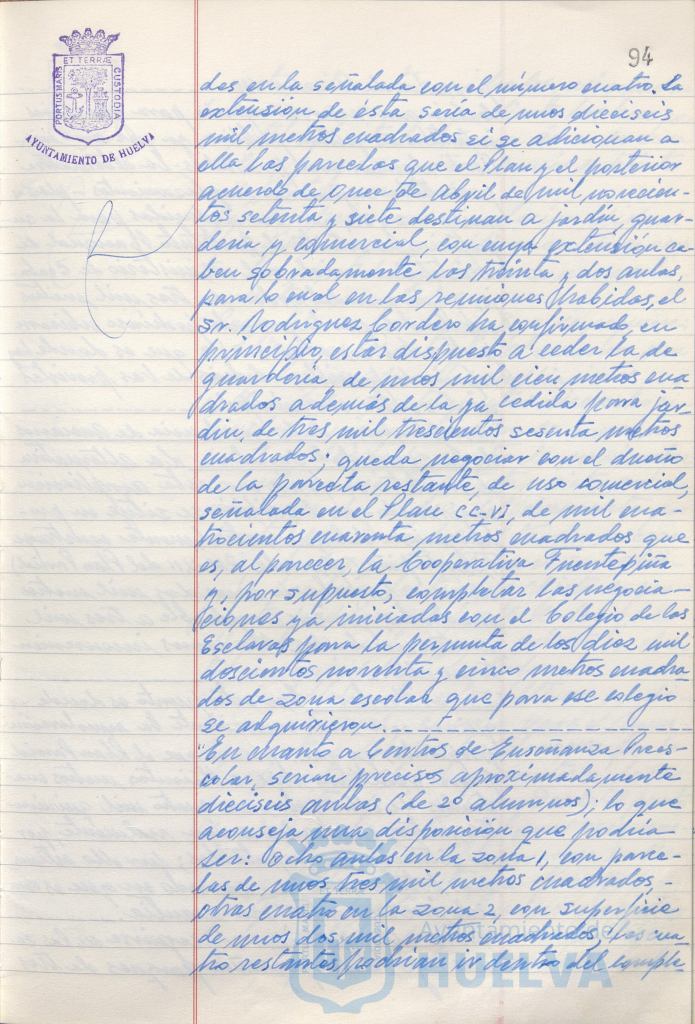 94
PORTUS MARIS ET TERRÆ CUSTODIA
AYUNTAMIENTO DE HUELVA
dos en la señalada con el número cuatro. La
extension de ésta sería de unos dieciseis
mil metros cuadrados si se adicionan a
ella las parcelas que el Plan y el posterior
acuerdo de once de Abril de mil novecien-
tos setenta y siete destinan a jardín, guar-
dería y comercial, con cuya extensión ca-
ben sobradamente las treinta y dos aulas,
para lo cual en las reuniones habidas, el
Sr. Rodriguez Cordero ha confirmado, en
principio, estar dispuesto a ceder la de
guardería, de unos mil cien metros cua-
drados además de la ya cedida para jar-
din, de tres mil trescientos sesenta metros
cuadrados; queda negociar con el dueño
de la parcela restante, de uso comercial,
señalada en el Plan CC-VI, de mil cua-
trocientos cuarenta metros cuadrados que
es, al parecer, la Cooperativa Fuentepiña
y, por supuesto, completar las negocia-
ciones ya iniciadas con el Colegio de las
Esclavas para la permuta de los diez mil
doscientos noventa y cinco metros cuadra-
dos de zona escolar que para ese colegio
se adquirieron.
"En cuanto a Centros de Enseñanza Prees-
colar, serian precisos aproximadamente
dieciseis aulas (de 20 alumnos); lo que
aconseja una disposición que podría
ser: Ocho aulas en la zona 1, con parce-
las de unos tres mil metros cuadrados,-
otras cuatro en la zona 2, con superficie
de unos dos mil metros cuadrados, las cua-
tro restantes podrían ir dentro del comple-
Ayuntamiento de
HUELVA